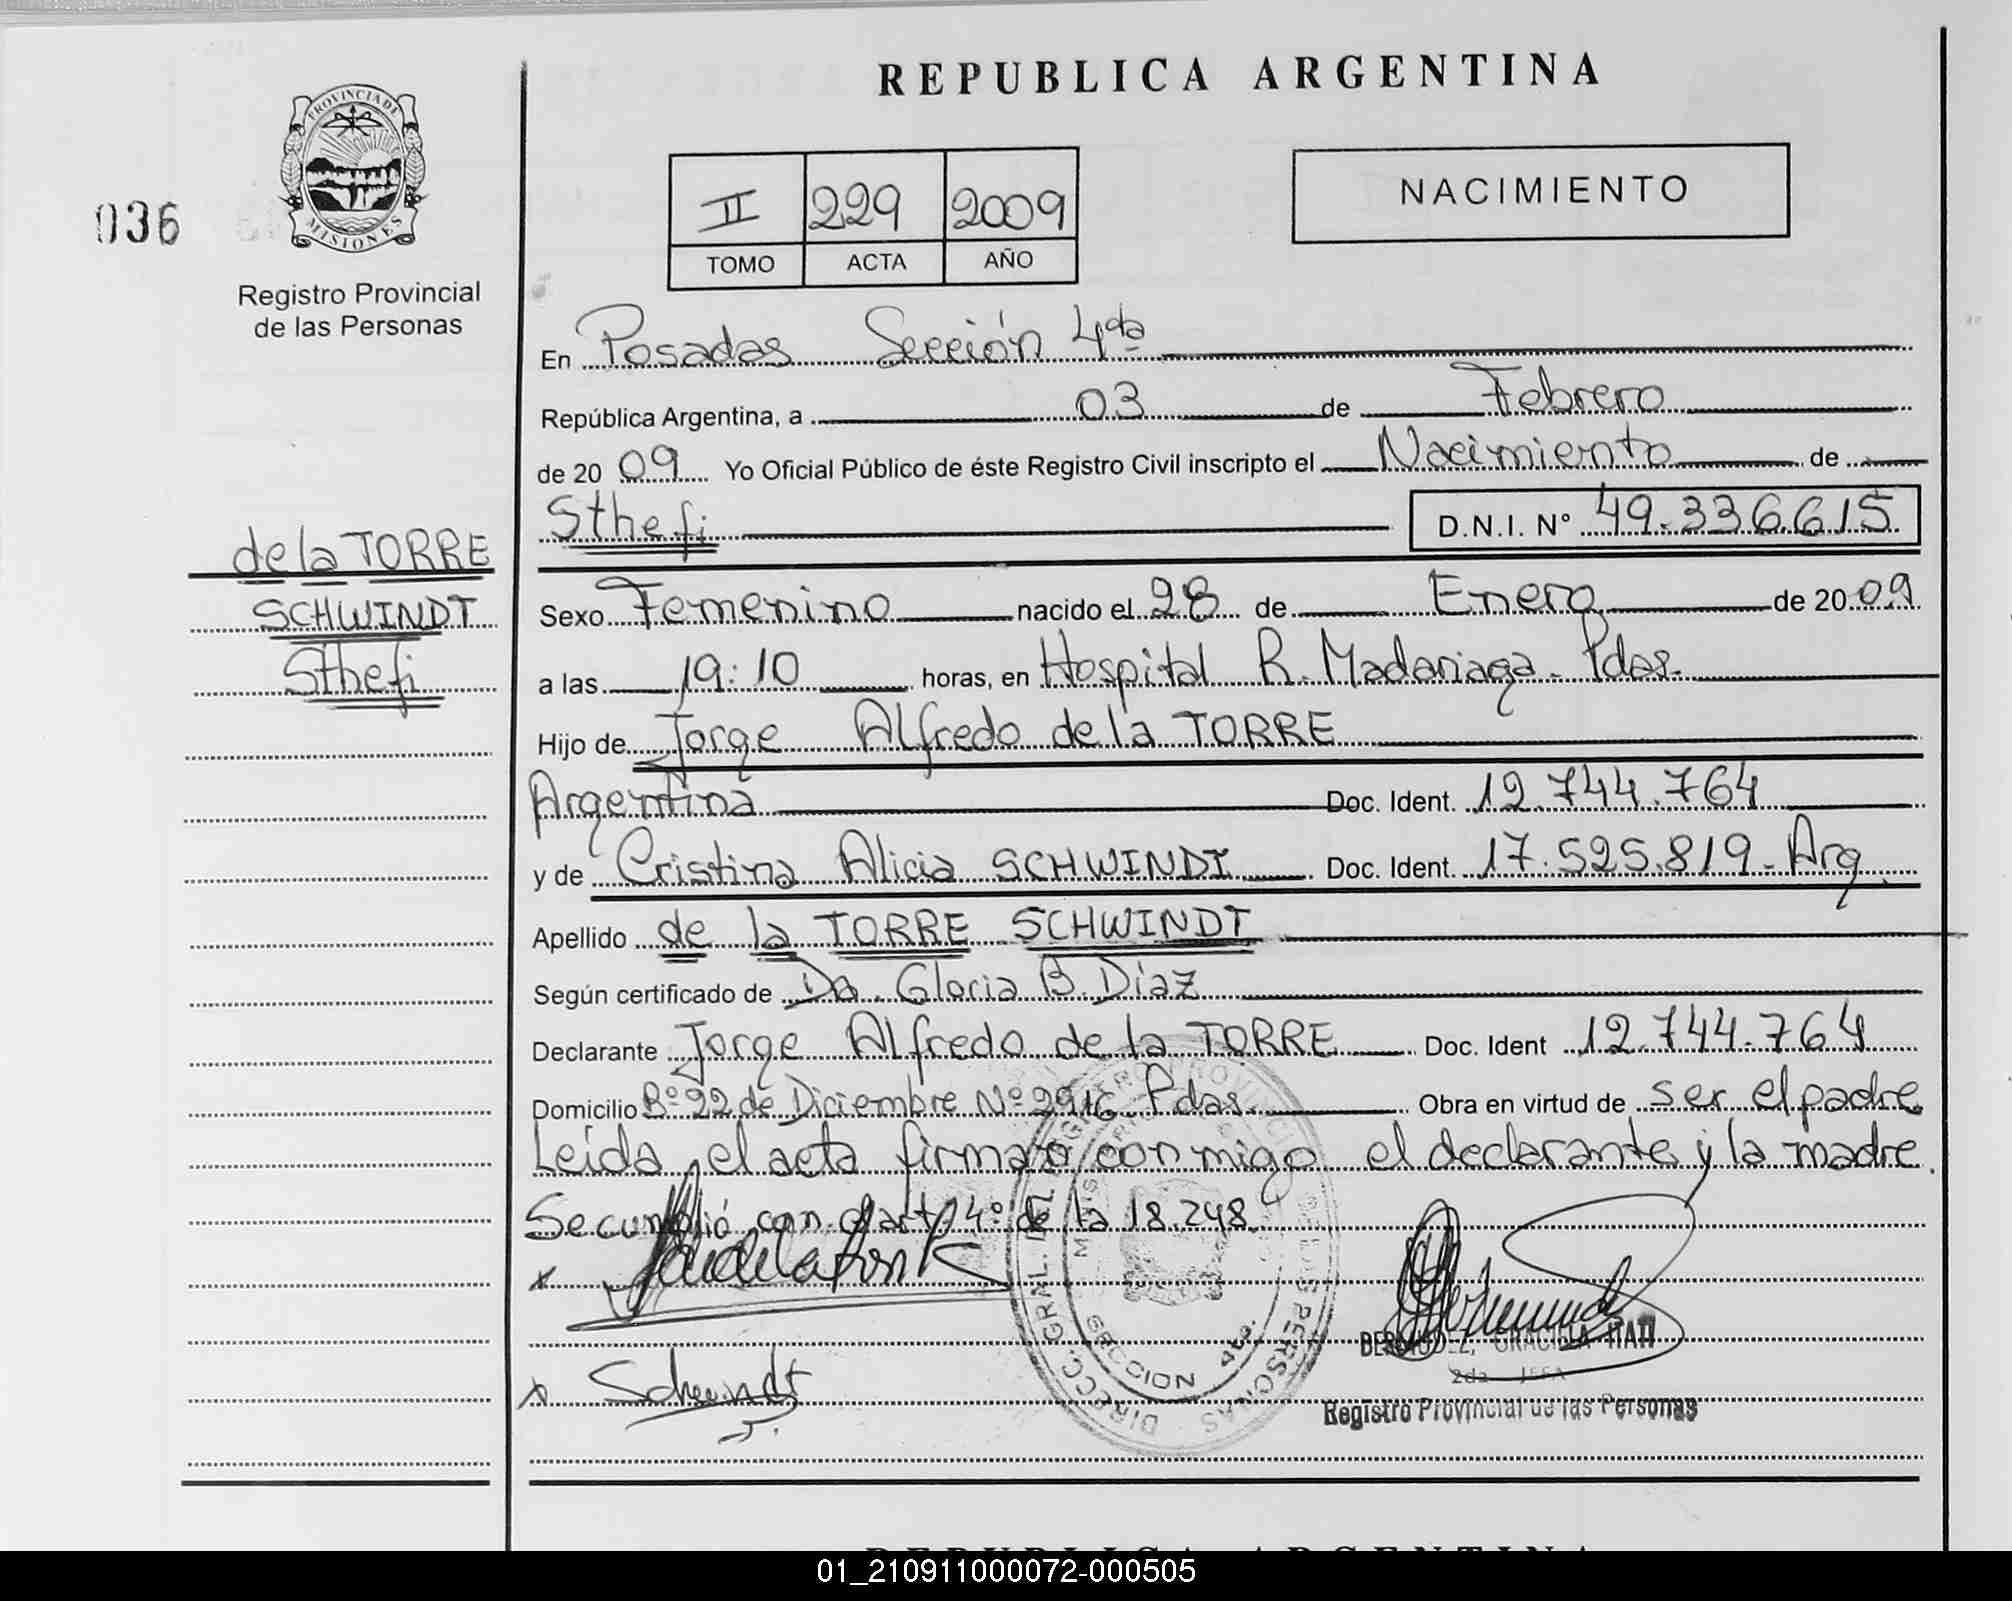 REPUBLICA ARGENTINA
PROVINCIA DE
MISIONES
036
Registro Provincial
de las Personas
II 229 2009
TOMO ACTA AÑO
NACIMIENTO
En Posadas Sección 4ta
República Argentina, a 03 de Febrero
de 2009 Yo Oficial Público de éste Registro Civil inscripto el Nacimiento de
Sthefi D.N.I. N° 49.336.615
de la TORRE
SCHWINDT
Sthefi
Sexo Femenino nacido el 28 de Enero de 2009
a las 19:10 horas, en Hospital R. Madariaga - Pdas.
Hijo de Jorge Alfredo de la TORRE
Argentina Doc. Ident. 12.744.764
y de Cristina Alicia SCHWINDT Doc. Ident. 17.525.819 - Arg
Apellido de la TORRE SCHWINDT
Según certificado de Da. Gloria B. Díaz
Declarante Jorge Alfredo de la TORRE Doc. Ident 12.744.764
Domicilio Bº 22 de Diciembre Nº 2916 Pdas. Obra en virtud de ser el padre
Leída el acta firman conmigo el declarante y la madre.
Se cumplió con el art 14º de la 18.248.
x
x Schwindt
DIRECC. GRAL. DEL REGISTRO PROVINCIAL DE LAS PERSONAS
SECCION 4ta.
BERMUDEZ, GRACIELA ITATI
2da JEFA
Registro Provincial de las Personas
REPUBLICA ARGENTINA
01_210911000072-000505